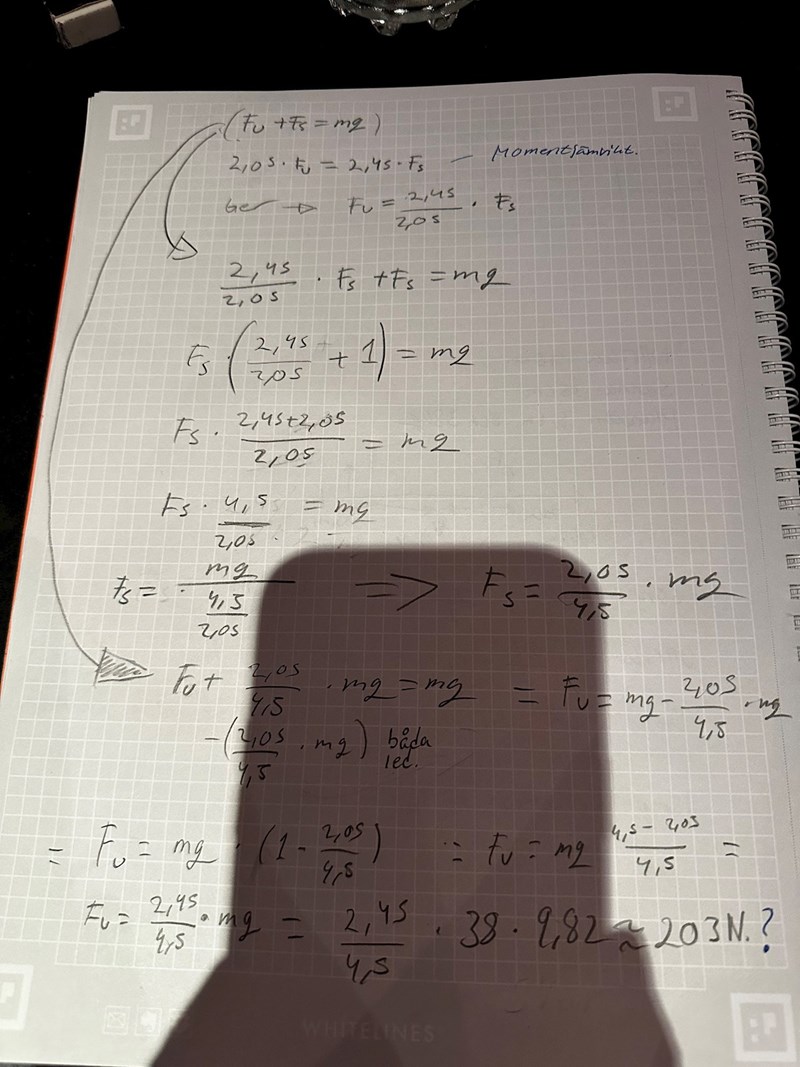 (Fu + Fs = mg)
2,05 · Fu = 2,45 · Fs — Momentjämvikt.
Ger → Fu = 2,45/2,05 · Fs
2,45/2,05 · Fs + Fs = mg
Fs · (2,45/2,05 + 1) = mg
Fs · (2,45+2,05)/2,05 = mg
Fs · 4,5/2,05 = mg
Fs = mg/(4,5/2,05) ⇒ Fs = 2,05/4,5 · mg
Fu + 2,05/4,5 · mg = mg = Fu = mg - 2,05/4,5 · mg
-(2,05/4,5 · mg) båda led.
= Fu = mg · (1 - 2,05/4,5) = Fu = mg (4,5 - 2,05)/4,5 =
Fu = 2,45/4,5 · mg = 2,45/4,5 · 38 · 9,82 ≈ 203N.?
WHITELINES